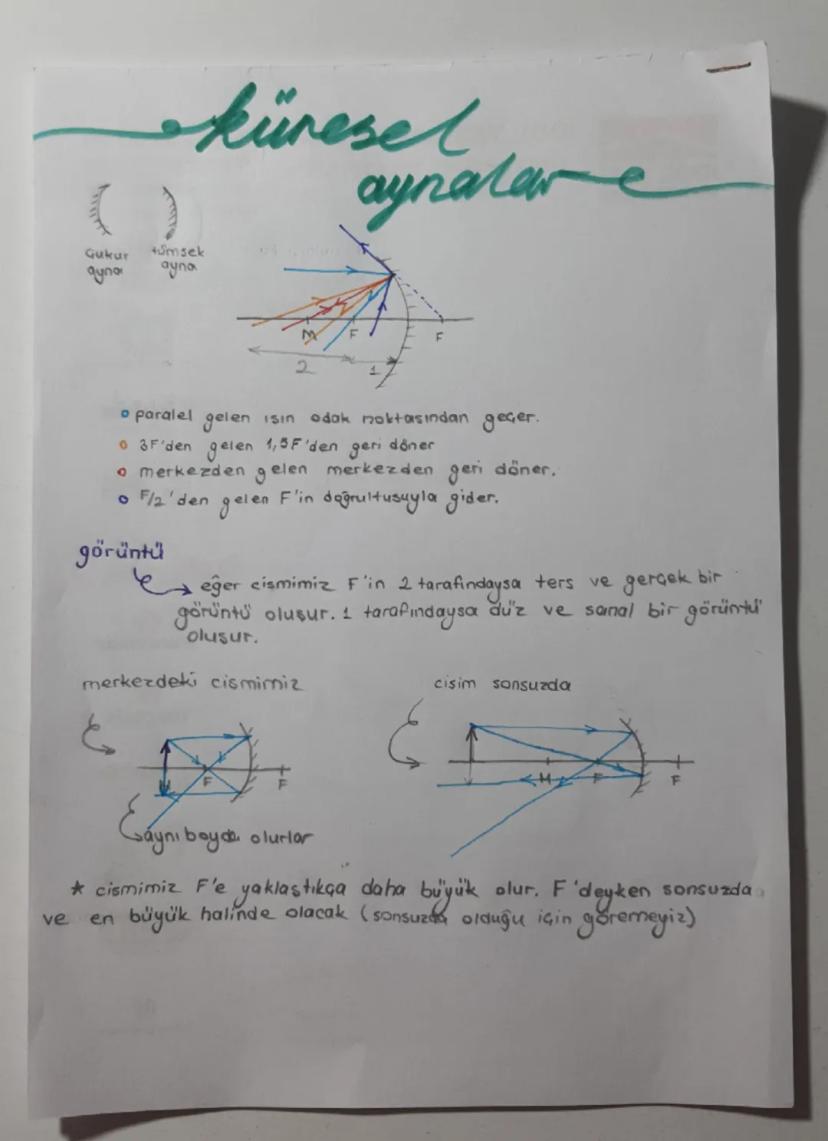 küresel
aynalar
Çukur
ayna
tümsek
ayna
M
F
F
2
1
paralel gelen ışın odak noktasından geçer.
3F'den gelen 1,5F'den geri döner
merkezden gelen merkezden geri döner.
F/2'den gelen F'in doğrultusuyla gider.
görüntü
eğer cismimiz F'in 2 tarafındaysa ters ve gerçek bir
görüntü oluşur. 1 tarafındaysa düz ve sanal bir görüntü
oluşur.
merkezdeki cismimiz
F
F
aynı boyda olurlar
cisim sonsuzda
M
F
F
* cismimiz F'e yaklaştıkça daha büyük olur. F'deyken sonsuzda
ve en büyük halinde olacak (sonsuzda olduğu için göremeyiz)